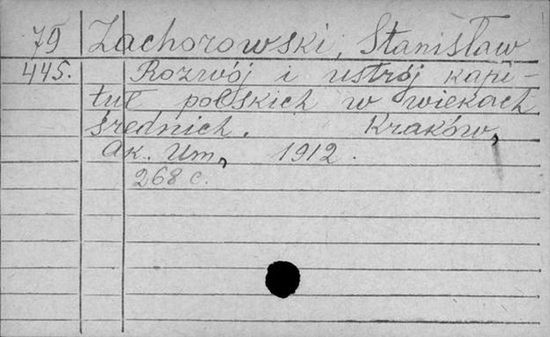 79 Zachorowski, Stanisław
445. Rozwój i ustrój kapi-
tuł polskich w wiekach
średnich. Kraków,
Ak. Um, 1912.
268 c.